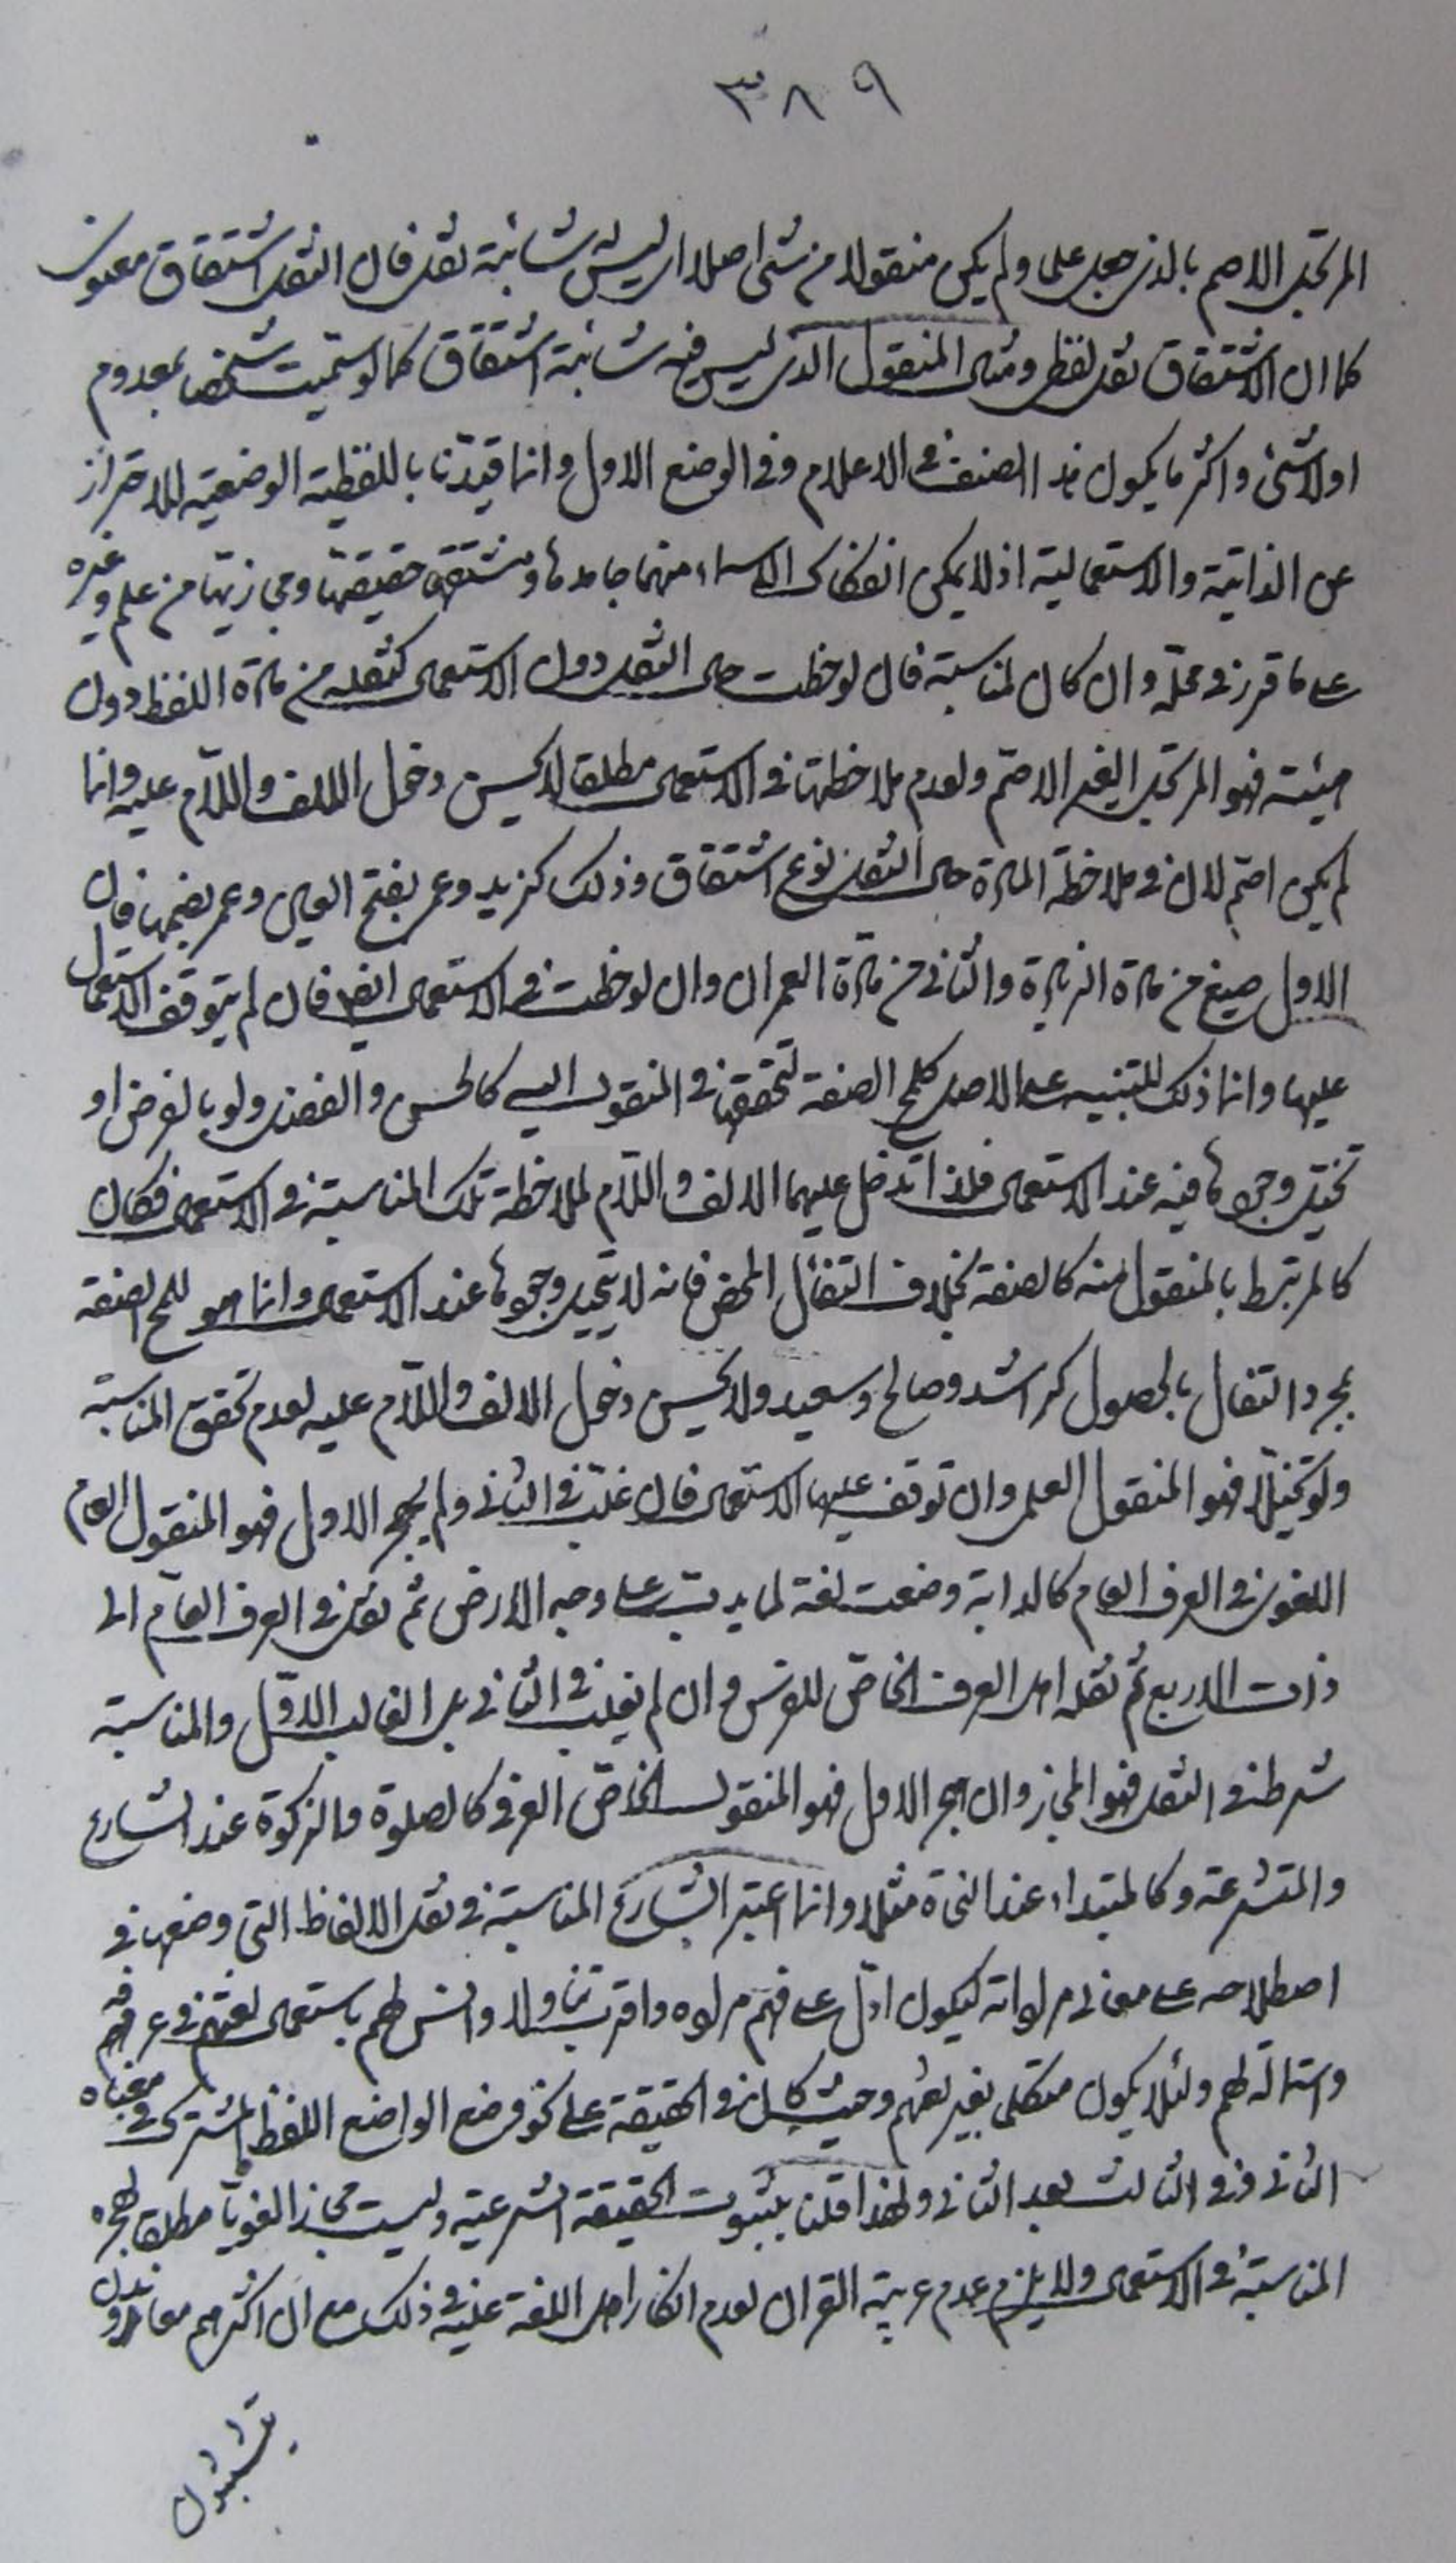 ٣٨٩
المرتجل الاصم بالذي جعل علما ولم يكن منقولا من شئ اصلا اي ليس له شائبة نقل فان النقل اشتقاق معنوي
كما ان الاشتقاق نقل لفظي ومثال المنقول الذي ليس فيه شائبة اشتقاق كما لو سميت شخصا بمعدوم
او لا شئ واكثر ما يكون هذا الصنف في الاعلام وفي الوضع الاول وانما قيدنا باللفظية الوضعية للاحتراز
عن الذاتية والاستعمالية اذ لا يمكن انفكاك الاسماء منهما جامدها ومشتقها حقيقتها ومجازيتها من علم وغيره
على ما قرر في محله وان كان لمناسبة فان لوحظت حال النقل دون الاستعمال كنقله من مادة اللفظ دون
هيئته فهو المرتجل الغير الاصم ولعدم ملاحظتها في الاستعمال مطلقا لا يحسن دخول الالف واللام عليه وانما
لم يكن اصم لان في ملاحظة المادة حال النقل نوع اشتقاق وذلك كزيد وعمر بفتح العين وعمر بضمها فان
الاول صيغ من مادة الزيادة والثاني من مادة العمران وان لوحظت في الاستعمال ايضا فان لم يتوقف الاستعمال
عليها وانما ذلك للتنبيه على الاصل كلمح الصفة لتحققها في المنقول اليه كالحسن والفضل ولو بالفرض او
تخيل وجودها فيه عند الاستعمال فلذا تدخل عليهما الالف واللام لملاحظة تلك المناسبة في الاستعمال فكان
كالمرتبط بالمنقول منه كالصفة بخلاف التفائل المحض فانه لا يتخيل وجودها عند الاستعمال وانما هو للمح الصفة
بمجرد التفال بالحصول كراشد وصالح وسعيد ولا يحسن دخول الالف واللام عليه لعدم تحقق المناسبة
ولو تخيلا فهو المنقول العلمي وان توقف عليها الاستعمال فان غلب في الثاني ولم يهجر الاول فهو المنقول العام
اللغوي في العرف العام كالدابة وضعت لغة لما يدب على وجه الارض ثم نقل في العرف العام الى
ذات الاربع ثم نقله اهل العرف الخاص للفرس وان لم يغلب في الثاني بل الغالب الاول والمناسبة
شرط في النقل فهو المجاز وان هجر الاول فهو المنقول الخاص العرفي كالصلوة والزكوة عند الشارع
والمتشرعة وكالمبتداء عند النحاة مثلا وانما اعتبر الشارع المناسبة في نقل الالفاظ التي وضعها في
اصطلاحه على معاني مراداته ليكون ادل على فهم مراده واقرب تناولا وانس لهم باستعمال لغتهم في عرفه
واستمالة لهم ولئلا يكون متكلما بغير لغتهم وحيث كان في الحقيقة على نحو وضع الواضع اللفظ المشترك في معناه
الثاني وفي الثالث بعد الثاني ولهذا قلنا بثبوت الحقيقة الشرعية وليست مجازا لغويا مطلقا لهجره
المناسبة في الاستعمال ولا يلزم عدم عربية القران لعدم انكار اهل اللغة عليه في ذلك مع ان اكثرهم معاندون